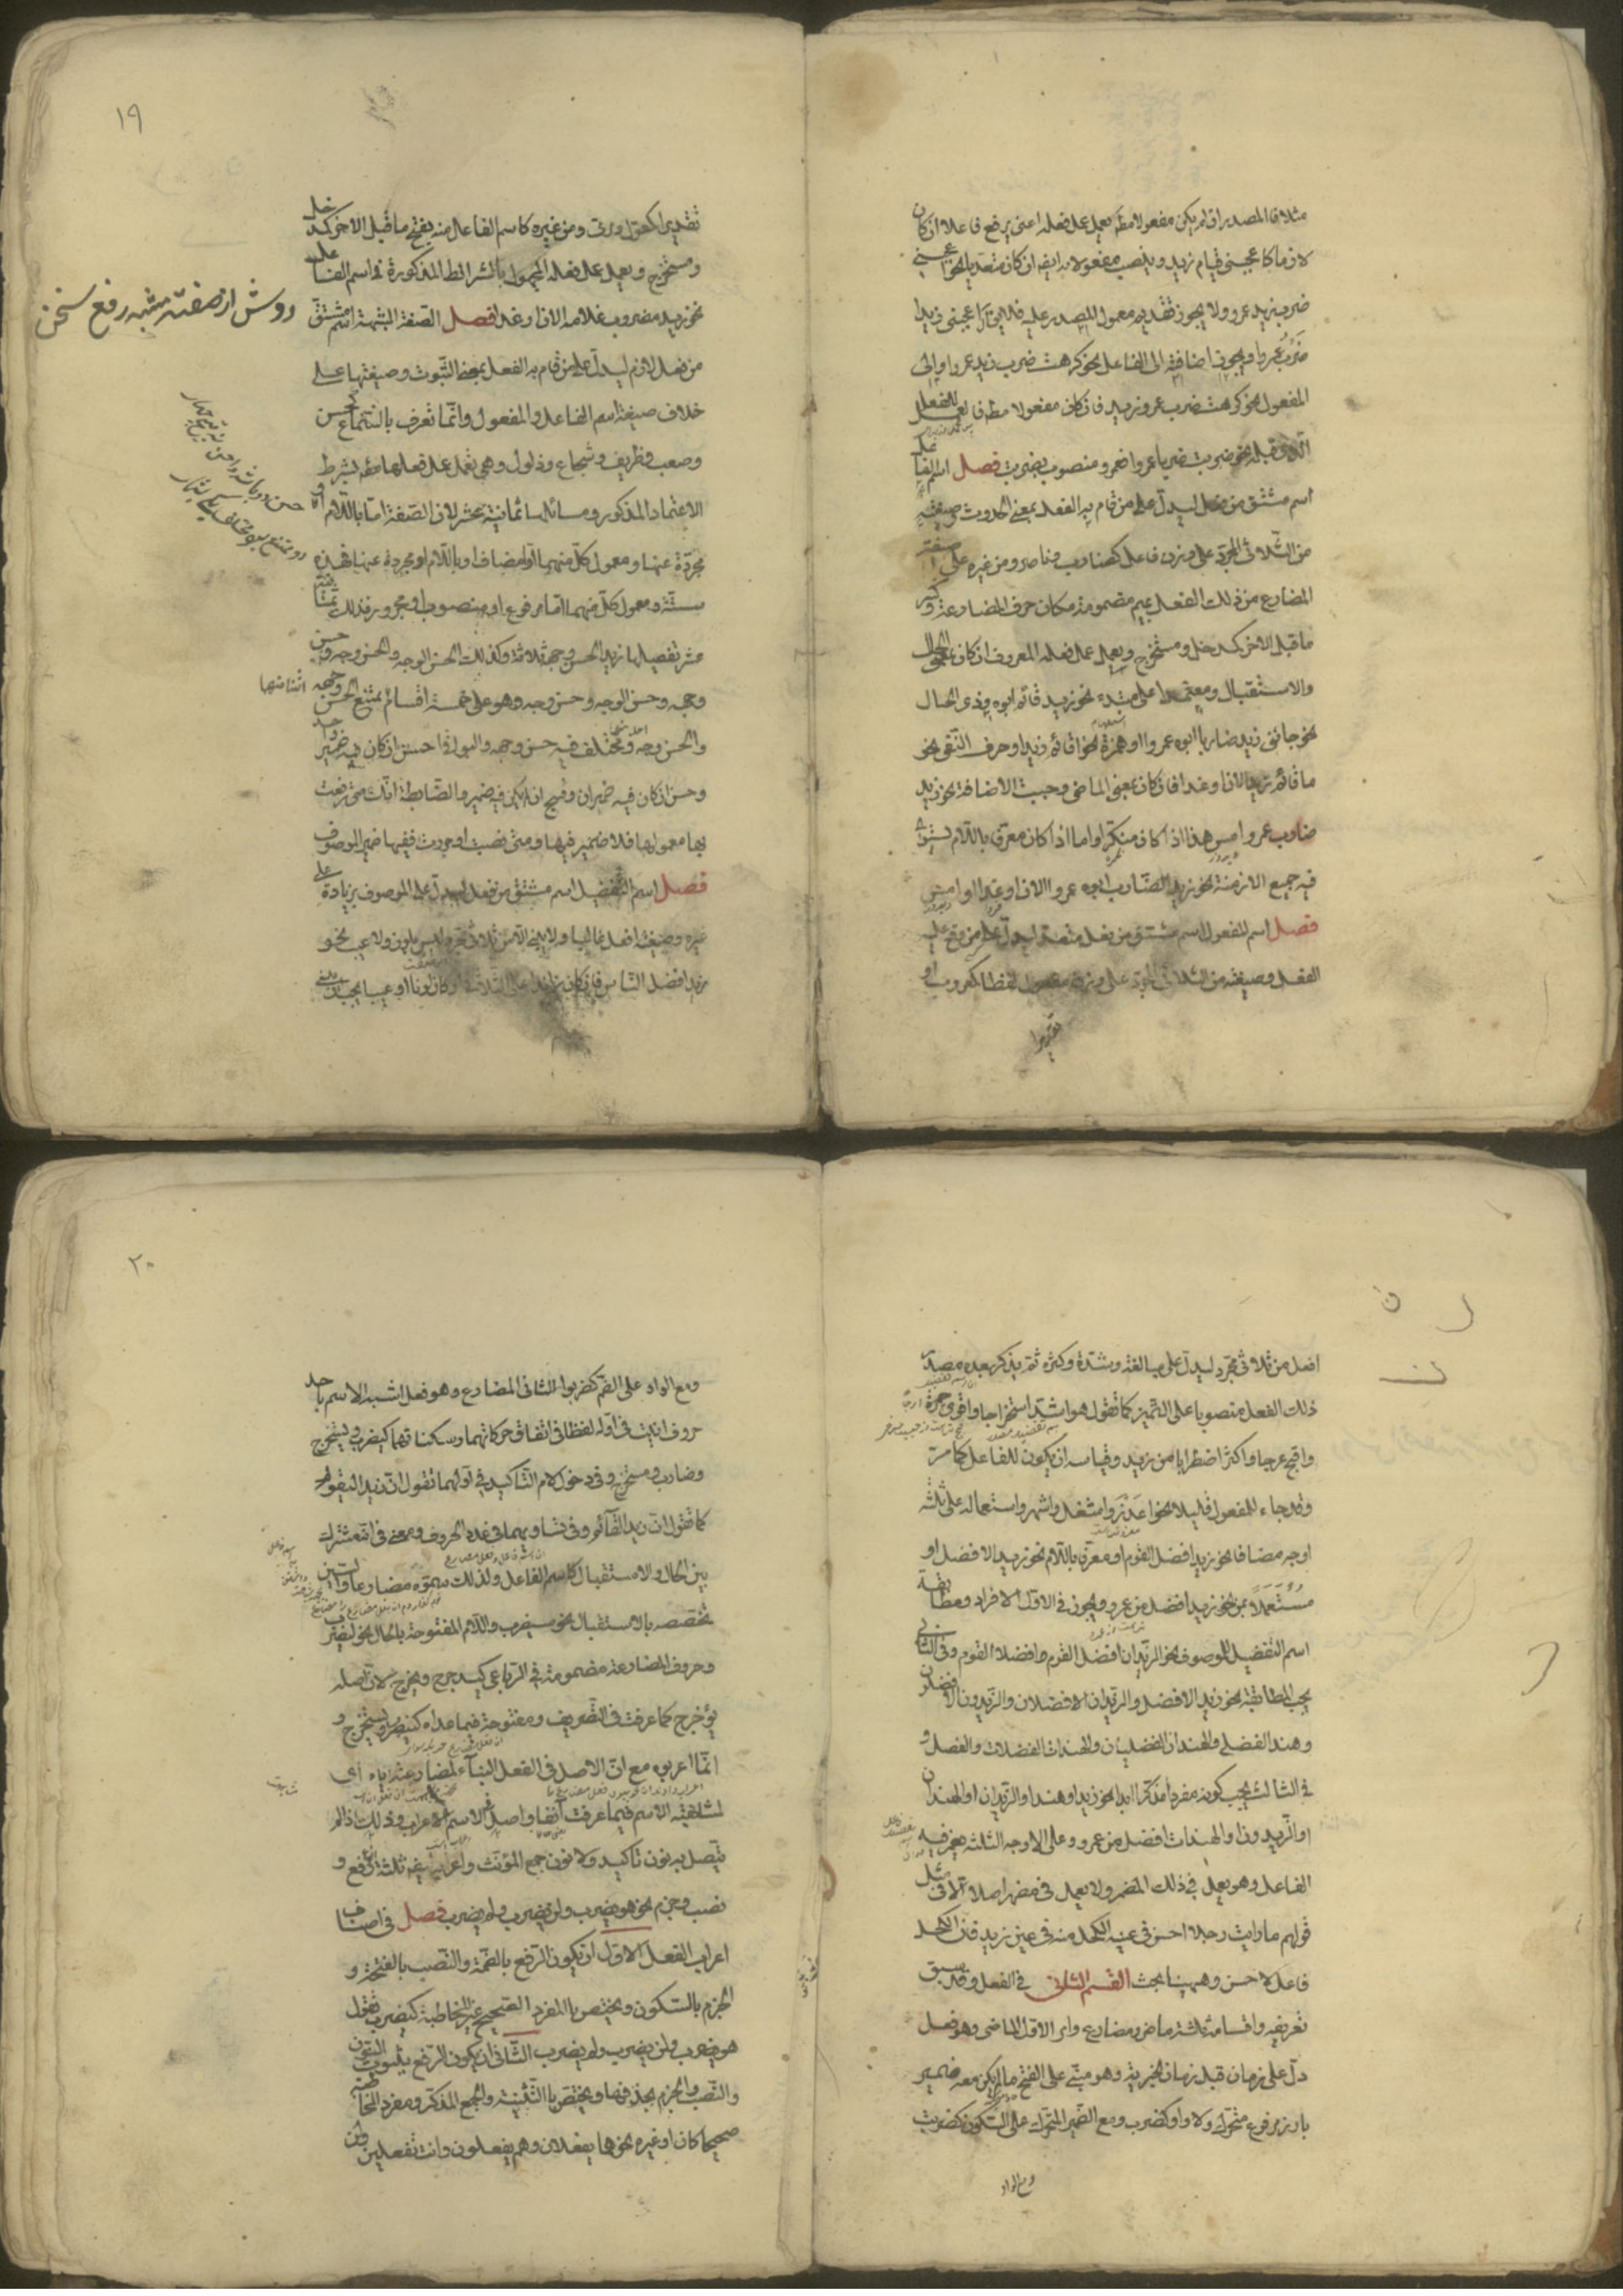 مثلا فالمصدر ان لم يكن مفعولا مطلقا يعمل عمل فعله اعنى يرفع فاعلا ان كان
لازما كاعجبنى قيام زيد وينصب مفعولا به ايضا ان كان متعديا نحو اعجبنى
ضرب زيد عمروا ولا يجوز تقديم معمول المصدر عليه فلا يقال اعجبنى زيد
ضَرْبٌ عمروا ويجوز اضافته الى الفاعل نحو كرهت ضرب زيد عمروا والى
المفعول نحو كرهت ضرب عمرو زيد فان كان مفعولا مطلقا فالعمل للفعل
الذى قبله نحو ضربت ضربا عمروا فعمرو منصوب بضربت فصل اسم الفاعل
اسم مشتق من فعل ليدل على من قام به الفعل بمعنى الحدوث وصيغته
من الثلاثى المجرد على وزن فاعل كضارب وناصر ومن غيره على صيغة
المضارع من ذلك الفعل بميم مضمومة مكان حرف المضارعة وكسر
ما قبل الاخر كمدخل ومستخرج ويعمل عمل فعله المعروف ان كان بمعنى الحال
والاستقبال ومعتمدا على مبتدء نحو زيد قائم ابوه او ذى الحال
نحو جائنى زيد ضاربا ابوه عمروا او همزة نحو اقائم زيد او حرف النفى نحو
ما قائم زيد الان او غدا فان كان بمعنى الماضى وجبت الاضافة نحو زيد
ضارب عمرو امس هذا اذا كان منكرا واما اذا كان معرفا باللام يستوى
فيه جميع الازمنة نحو زيد الضارب ابوه عمروا الان او غدا او امس
فصل اسم المفعول اسم مشتق من فعل متعد ليدل على من وقع عليه
الفعل وصيغته من الثلاثى المجرد على وزن مفعول لفظا كمضروب او
تقديرا
١٩
تقديرا كمقول ومرمى ومن غيره كاسم الفاعل منه بفتح ما قبل الاخر كمدخل
ومستخرج ويعمل عمل فعله المجهول بالشرائط المذكورة فى اسم الفاعل
نحو زيد مضروب غلامه الان او غدا فصل الصفة المشبهة اسم مشتق
من فعل لازم ليدل على من قام به الفعل بمعنى الثبوت وصيغتها على
خلاف صيغة اسم الفاعل والمفعول وانما تعرف بالسماع كحسن
وصعب وظريف وشجاع وذلول وهى تعمل عمل فعلها مطلقا بشرط
الاعتماد المذكور ومسائلها ثمانية عشر لان الصفة اما باللام او
مجردة عنها ومعمول كل منهما اما مضاف او باللام او مجردة عنها فهذه
ستة ومعمول كل منهما اما مرفوع او منصوب او مجرور فذلك ثمانية
عشر تفصيلها زيد الحسن وجهه ثلاثة وكذلك الحسن الوجه والحسن وجه وحسن
وجهه وحسن الوجه وحسن وجه وهو على خمسة اقسام ممتنع الحسن وجهه
والحسن وجه ومختلف فيه حسن وجهه والبواقى احسن ان كان فيه ضمير واحد
وحسن ان كان فيه ضميران وقبيح ان لم يكن فيه ضمير والضابطة انك متى رفعت
بها معمولها فلا ضمير فيها ومتى نصبت او جررت ففيها ضمير الموصوف
فصل اسم التفضيل اسم مشتق من فعل ليدل على الموصوف بزيادة على
غيره وصيغته افعل غالبا ولا يبنى الا من ثلاثى مجرد ليس بلون ولا عيب نحو
زيد افضل الناس فان كان زائدا على الثلاثة او كان لونا او عيبا يجب ان يبنى
روش از صفت مشبه رفع سخن
اثنا منها
افعل من ثلاثى مجرد ليدل على مبالغة وشدة وكثرة ثم يذكر بعده مصدر
ذلك الفعل منصوبا على التميز كما تقول هو اشد استخراجا واقوى حمرة
واقبح عرجا واكثر اضطرابا من زيد وقياسه ان يكون للفاعل كما مر
وقد جاء للمفعول قليلا نحو اعذر واشغل واشهر واستعماله على ثلثة
اوجه مضافا نحو زيد افضل القوم او معرف باللام نحو زيد الافضل او
مُسْتَعمَلاً بمن نحو زيد افضل من عمرو ويجوز فى الاول الافراد ومطابقة
اسم التفضيل للموصوف نحو الزيدان افضل القوم وافضلا القوم وفى الثانى
يجب المطابقة نحو زيد الافضل والزيدان الافضلان والزيدون الافضلون
وهند الفضلى والهندان الفضليان والهندات الفضليات والفضل و
فى الثالث يجب كونه مفردا مذكرا ابدا نحو زيد او هند او الزيدان او الهندان
او الزيدون او الهندات افضل من عمرو وعلى الاوجه الثلثة يضمر فيه
الفاعل وهو يعمل فى ذلك المضمر ولا يعمل فى مظهر اصلا الا فى مثل
قولهم ما رايت رجلا احسن فى عينه الكحل منه فى عين زيد فان الكحل
فاعل لاحسن وههنا بحث القسم الثانى فى الفعل وقد سبق
تعريفه واقسامه ثلثة ماض ومضارع وامر الاول الماضى وهو فعل
دل على زمان قبل زمان الخبر به وهو مبنى على الفتح ما لم يكن معه ضمير
بارز مرفوع متحرك ولا واو كضرب ومع الضمير المتحرك على السكون كضربت
ومع الواو
٢٠
ومع الواو على الضم كضربوا الثانى المضارع وهو فعل اشبه الاسم باحد
حروف اتين فى اوله لفظا فى اتفاق حركاتهما وسكناتهما كيضرب ويستخرج
وضارب ومستخرج وفى دخول لام التاكيد فى اولهما تقول ان زيد ليقوم
كما تقول ان زيد القائم وفى تساويهما فى عدد الحروف ومعنى فى انه مشترك
بين الحال والاستقبال كاسم الفاعل ولذلك سموه مضارعا والسين
تخصصه بالاستقبال نحو سيضرب واللام المفتوحة بالحال نحو ليضرب
وحروف المضارعة مضمومة فى الرباعى كيدحرج ويخرج لان اصله
يؤخرج كما عرفت فى التصريف ومفتوحة فيما عداه كينصر ويستخرج و
انما اعربوه مع ان الاصل فى الفعل البناء لمضارعته اياه اى
لمشابهته الاسم فيما عرفت آنفا واصل الاسم الاعراب وذلك اذا لم
يتصل به نون تاكيد ولا نون جمع المؤنث واعرابه ثلثة رفع و
نصب وجزم نحو هو يضرب ولن يضرب ولم يضرب فصل فى اصناف
اعراب الفعل الاول ان يكون الرفع بالضمة والنصب بالفتحة و
الجزم بالسكون ويختص بالمفرد الصحيح غير المخاطبة كيضرب تقول
هو يضرب ولن يضرب ولم يضرب الثانى ان يكون الرفع بثبوت النون
والنصب والجزم بحذفها ويختص بالتثنية والجمع المذكر ومفرد المخاطبة
صحيحا كان او غيره نحو هما يفعلان وهم يفعلون وانت تفعلين ولن